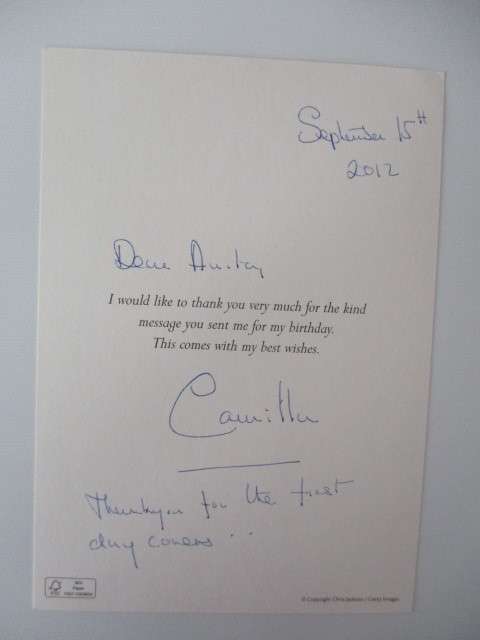 September 15th
2012
Dear
I would like to thank you very much for the kind
message you sent me for my birthday.
This comes with my best wishes.
Camilla
Thankyou for the first
day covers ..
FSC
MIX
Paper
© Copyright Chris Jackson / Getty Images